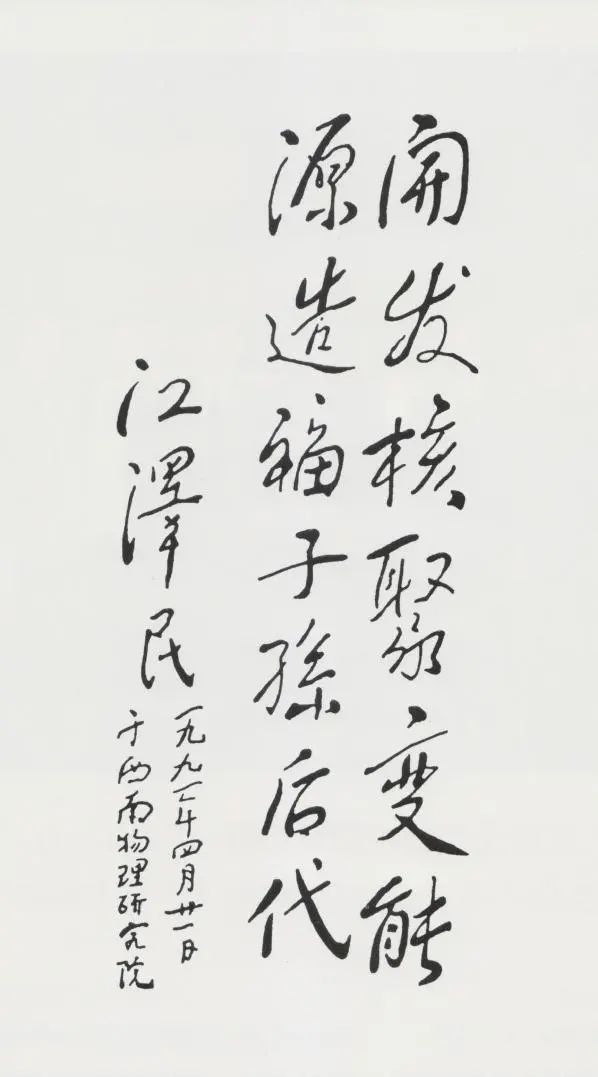 开发核聚变能
源造福子孫后代
江澤民
一九九一年四月廿一日
于西南物理研究院